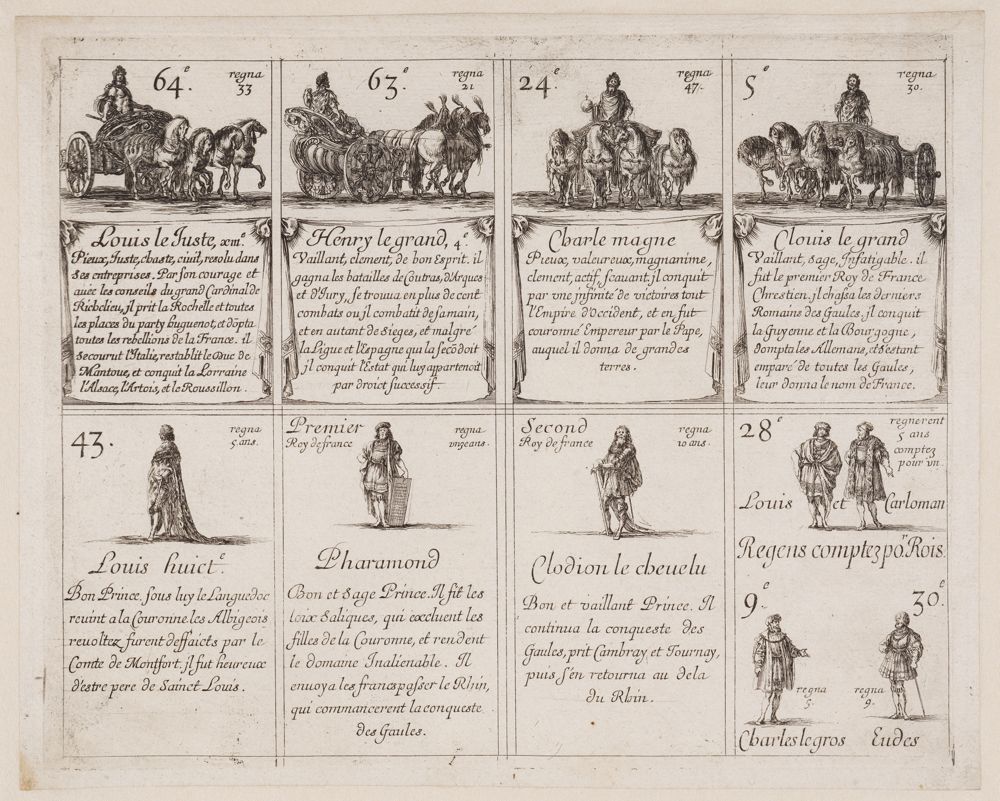 64.e
regna
33
Louis le Juste, xiii.e
Pieux, Juste, chaste, civil, resolu dans
ses entreprises. Par son courage et
avec les conseils du grand Cardinal de
Richelieu, jl prit la Rochelle et toutes
les places du party huguenot, et dõpta
toutes les rebellions de la France. il
secourut l'Italie, restablit le Duc de
Mantoue, et conquit la Lorraine
l'Alsace, l'Artois, et le Roussillon.
63.e
regna
21
Henry le grand, 4.e
Vaillant, clement, de bon Esprit. il
gagna les batailles de Coutras, d'Arques
et d'Jury, se trouua en plus de cent
combats ou jl combatit de sa main,
et en autant de sieges, et malgré
la Ligue et l'Espagne qui la secõdoit
jl conquit l'Estat qui luy appartenoit
par droict successif.
24.e
regna
47.
Charle magne
Pieux, valeureux, magnanime,
clement, actif, scauant. jl conquit
par vne jnfinité de victoires tout
l'Empire d'Occident, et en fut
couronné Empereur par le Pape,
auquel il donna de grandes
terres.
5e
regna
30.
Clouis le grand
Vaillant, sage, Jnfatigable. il
fut le premier Roy de France
Chrestien. jl chassa les derniers
Romains des Gaules. jl conquit
la Guyenne et la Bourgogne,
dompta les Allemans, et s'estant
emparé de toutes les Gaules,
leur donna le nom de France.
43.
regna
5 ans.
Louis huict.e
Bon Prince. sous luy le Languedoc
reuint a la Couronne. les Albigeois
reuoltez furent deffaicts par le
Comte de Montfort. jl fut heureux
d'estre pere de Sainct Louis.
Premier
Roy de france
regna
Pharamond
Bon et sage Prince. Jl fit les
loix Saliques, qui excluent les
filles de la Couronne, et rendent
le domaine Jnalienable. Jl
enuoya les francs passer le Rhin,
qui commancerent la conqueste
des Gaules.
Second
Roy de france
regna
10 ans.
Clodion le cheuelu
Bon et vaillant Prince. Jl
continua la conqueste des
Gaules, prit Cambray et Tournay,
puis s'en retourna au dela
du Rhin.
28e
regnerent
5 ans
comptez
pour vn.
Louis et Carloman
Regens comptez po.r Rois.
9.e
regna
5.
Charles le gros
30.e
regna
9.
Eudes